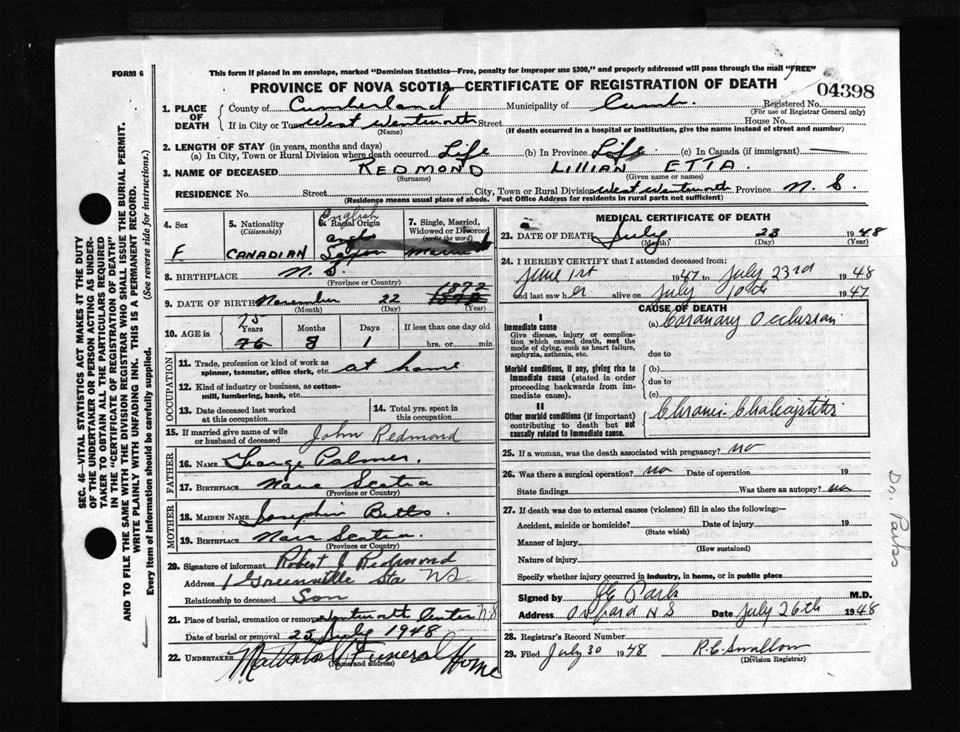 FORM 6
This form if placed in an envelope, marked "Dominion Statistics—Free, penalty for improper use $300," and properly addressed will pass through the mail "FREE"
PROVINCE OF NOVA SCOTIA—CERTIFICATE OF REGISTRATION OF DEATH
04398
1. PLACE OF DEATH
County of Cumberland Municipality of Cumb. Registered No.
(For use of Registrar General only)
If in City or Town West Wentworth Street House No.
(Name) (If death occurred in a hospital or institution, give the name instead of street and number)
2. LENGTH OF STAY (in years, months and days)
(a) In City, Town or Rural Division where death occurred Life (b) In Province Life (c) In Canada (if immigrant) —
3. NAME OF DECEASED REDMOND LILLIAN ETTA.
(Surname) (Given name or names)
RESIDENCE No. Street City, Town or Rural Division West Wentworth Province N. S.
(Residence means usual place of abode. Post Office Address for residents in rural parts not sufficient)
4. Sex
F
5. Nationality (Citizenship)
CANADIAN
6. Racial Origin
English
Anglo Saxon
7. Single, Married, Widowed or Divorced (write the word)
Married
8. BIRTHPLACE N. S.
(Province or Country)
9. DATE OF BIRTH November 22 1872
(Month) (Day) (Year)
10. AGE in 75 76 8 1
Years Months Days If less than one day old
hrs. or min.
OCCUPATION
11. Trade, profession or kind of work as spinner, teamster, office clerk, etc. at home
12. Kind of industry or business, as cotton-mill, lumbering, bank, etc.
13. Date deceased last worked at this occupation
14. Total yrs. spent in this occupation
15. If married give name of wife or husband of deceased John Redmond
FATHER
16. NAME George Palmer.
17. BIRTHPLACE Nova Scotia
(Province or Country)
MOTHER
18. MAIDEN NAME Josephin Betts.
19. BIRTHPLACE Nova Scotia.
(Province or Country)
20. Signature of informant Robert J Redmond
Address Greenville Sta NS
Relationship to deceased Son
21. Place of burial, cremation or removal Wentworth Center N.S
Date of burial or removal 25 July 1948
22. UNDERTAKER Mattatall Funeral Home
(Name and address)
MEDICAL CERTIFICATE OF DEATH
23. DATE OF DEATH July 23 1948
(Month) (Day) (Year)
24. I HEREBY CERTIFY that I attended deceased from:
June 1st 1947 to July 23rd 1948
and last saw her alive on July 10th 1947
CAUSE OF DEATH
I
Immediate cause
Give disease, injury or complication which caused death, not the mode of dying, such as heart failure, asphyxia, asthenia, etc.
(a) Coronary Occlusion
due to
Morbid conditions, if any, giving rise to immediate cause (stated in order proceeding backwards from immediate cause)
(b)
due to
(c)
II
Other morbid conditions (if important) contributing to death but not causally related to immediate cause.
Chronic Cholecystitis
25. If a woman, was the death associated with pregnancy? no
26. Was there a surgical operation? no Date of operation 19
State findings Was there an autopsy? no
27. If death was due to external causes (violence) fill in also the following:—
Accident, suicide or homicide? Date of injury 19
(State which)
Manner of injury
(How sustained)
Nature of injury
Specify whether injury occurred in industry, in home, or in public place
Signed by Park M.D.
Address Oxford N S Date July 26th 1948
28. Registrar's Record Number
29. Filed July 30 1948 R.C. Swallow
(Division Registrar)
SEC. 46—VITAL STATISTICS ACT MAKES IT THE DUTY
OF THE UNDERTAKER OR PERSON ACTING AS UNDER-
TAKER TO OBTAIN ALL THE PARTICULARS REQUIRED
IN THE "CERTIFICATE OF REGISTRATION OF DEATH"
AND TO FILE THE SAME WITH THE DIVISION REGISTRAR WHO SHALL ISSUE THE BURIAL PERMIT.
WRITE PLAINLY WITH UNFADING INK. THIS IS A PERMANENT RECORD.
Every item of information should be carefully supplied. (See reverse side for instructions.)
Dr. Parks